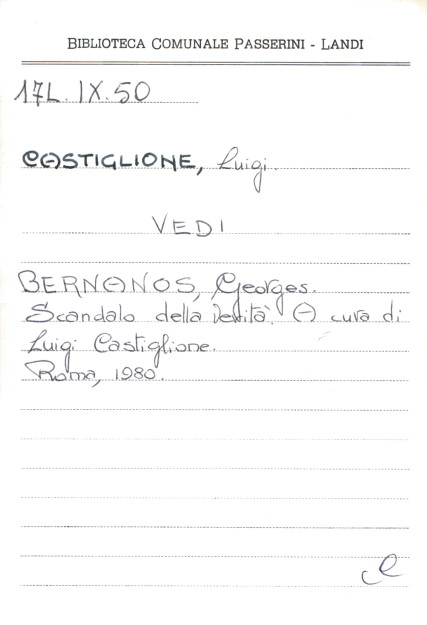 BIBLIOTECA COMUNALE PASSERINI - LANDI
17L. IX. 50
CASTIGLIONE, Luigi.
VEDI
BERNANOS, Georges.
Scandalo della verità. A cura di
Luigi Castiglione.
Roma, 1980.
e